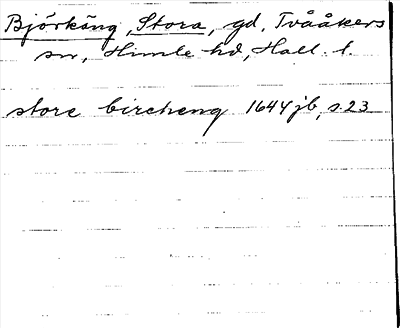 Björkäng, Stora, gd, Tvååkers
sn, Himle hd, Hall. l.
store bircheng 1644 jb, s. 23